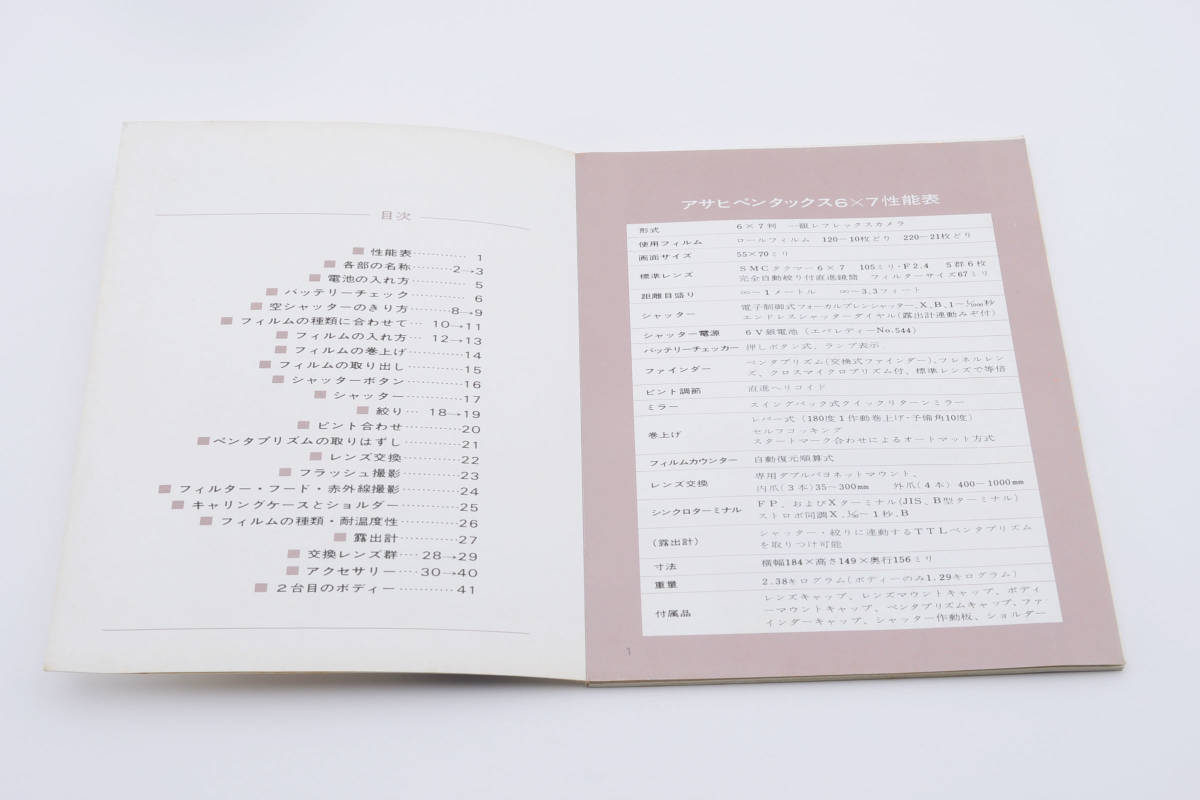 目次
■ 性能表………… 1
■ 各部の名称………2→3
■ 電池の入れ方………… 5
■ バッテリーチェック………… 6
■ 空シャッターのきり方………8→9
■ フィルムの種類に合わせて… 10→11
■ フィルムの入れ方… 12→13
■ フィルムの巻上げ…………14
■ フィルムの取り出し…………15
■ シャッターボタン…………16
■ シャッター…………17
■ 絞り… 18→19
■ ピント合わせ…………20
■ ペンタプリズムの取りはずし…………21
■ レンズ交換…………22
■ フラッシュ撮影…………23
■ フィルター・フード・赤外線撮影…………24
■ キャリングケースとショルダー…………25
■ フィルムの種類・耐温度性…………26
■ 露出計…………27
■ 交換レンズ群… 28→29
■ アクセサリー…30→40
■ 2台目のボディー…………41
アサヒペンタックス6×7性能表
形式 6×7判 一眼レフレックスカメラ
使用フィルム ロールフィルム 120−10枚どり 220−21枚どり
画面サイズ 55×70ミリ
標準レンズ SMCタクマー6×7 105ミリ・F2.4 5群6枚
完全自動絞り付直進鏡筒 フィルターサイズ67ミリ
距離目盛り ∞〜1メートル ∞〜3.3フィート
シャッター 電子制御式フォーカルプレンシャッター、X、B、1〜1/1000秒
エンドレスシャッターダイヤル(露出計連動みぞ付)
シャッター電源 6V銀電池(エバレディーNo.544)
バッテリーチェッカー 押しボタン式、ランプ表示
ファインダー ペンタプリズム(交換式ファインダー)、フレネルレン
ズ、クロスマイクロプリズム付、標準レンズで等倍
ピント調節 直進ヘリコイド
ミラー スイングバック式クイックリターンミラー
巻上げ レバー式(180度1作動巻上げ・予備角10度)
セルフコッキング
スタートマーク合わせによるオートマット方式
フィルムカウンター 自動復元順算式
レンズ交換 専用ダブルバヨネットマウント、
内爪(3本)35〜300mm 外爪(4本) 400〜1000mm
シンクロターミナル FP、およびXターミナル(JIS、B型ターミナル)
ストロボ同調X、1/30〜1秒、B
(露出計) シャッター・絞りに連動するTTLペンタプリズム
を取りつけ可能
寸法 横幅184×高さ149×奥行156ミリ
重量 2.38キログラム(ボディーのみ1.29キログラム)
付属品 レンズキャップ、レンズマウントキャップ、ボディ
ーマウントキャップ、ペンタプリズムキャップ、ファ
インダーキャップ、シャッター作動板、ショルダー
1